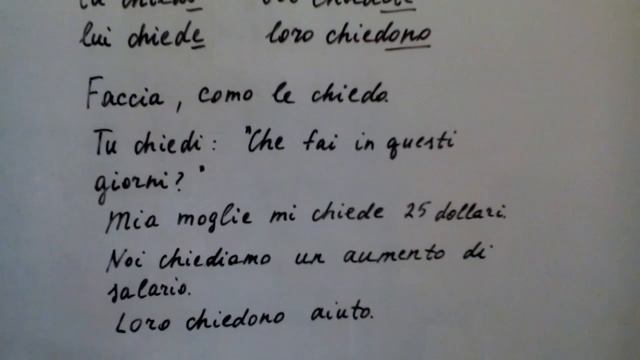 lui chiede loro chiedono
Faccia, como le chiedo.
Tu chiedi: "Che fai in questi
giorni?"
Mia moglie mi chiede 25 dollari.
Noi chiediamo un aumento di
salario.
Loro chiedono aiuto.